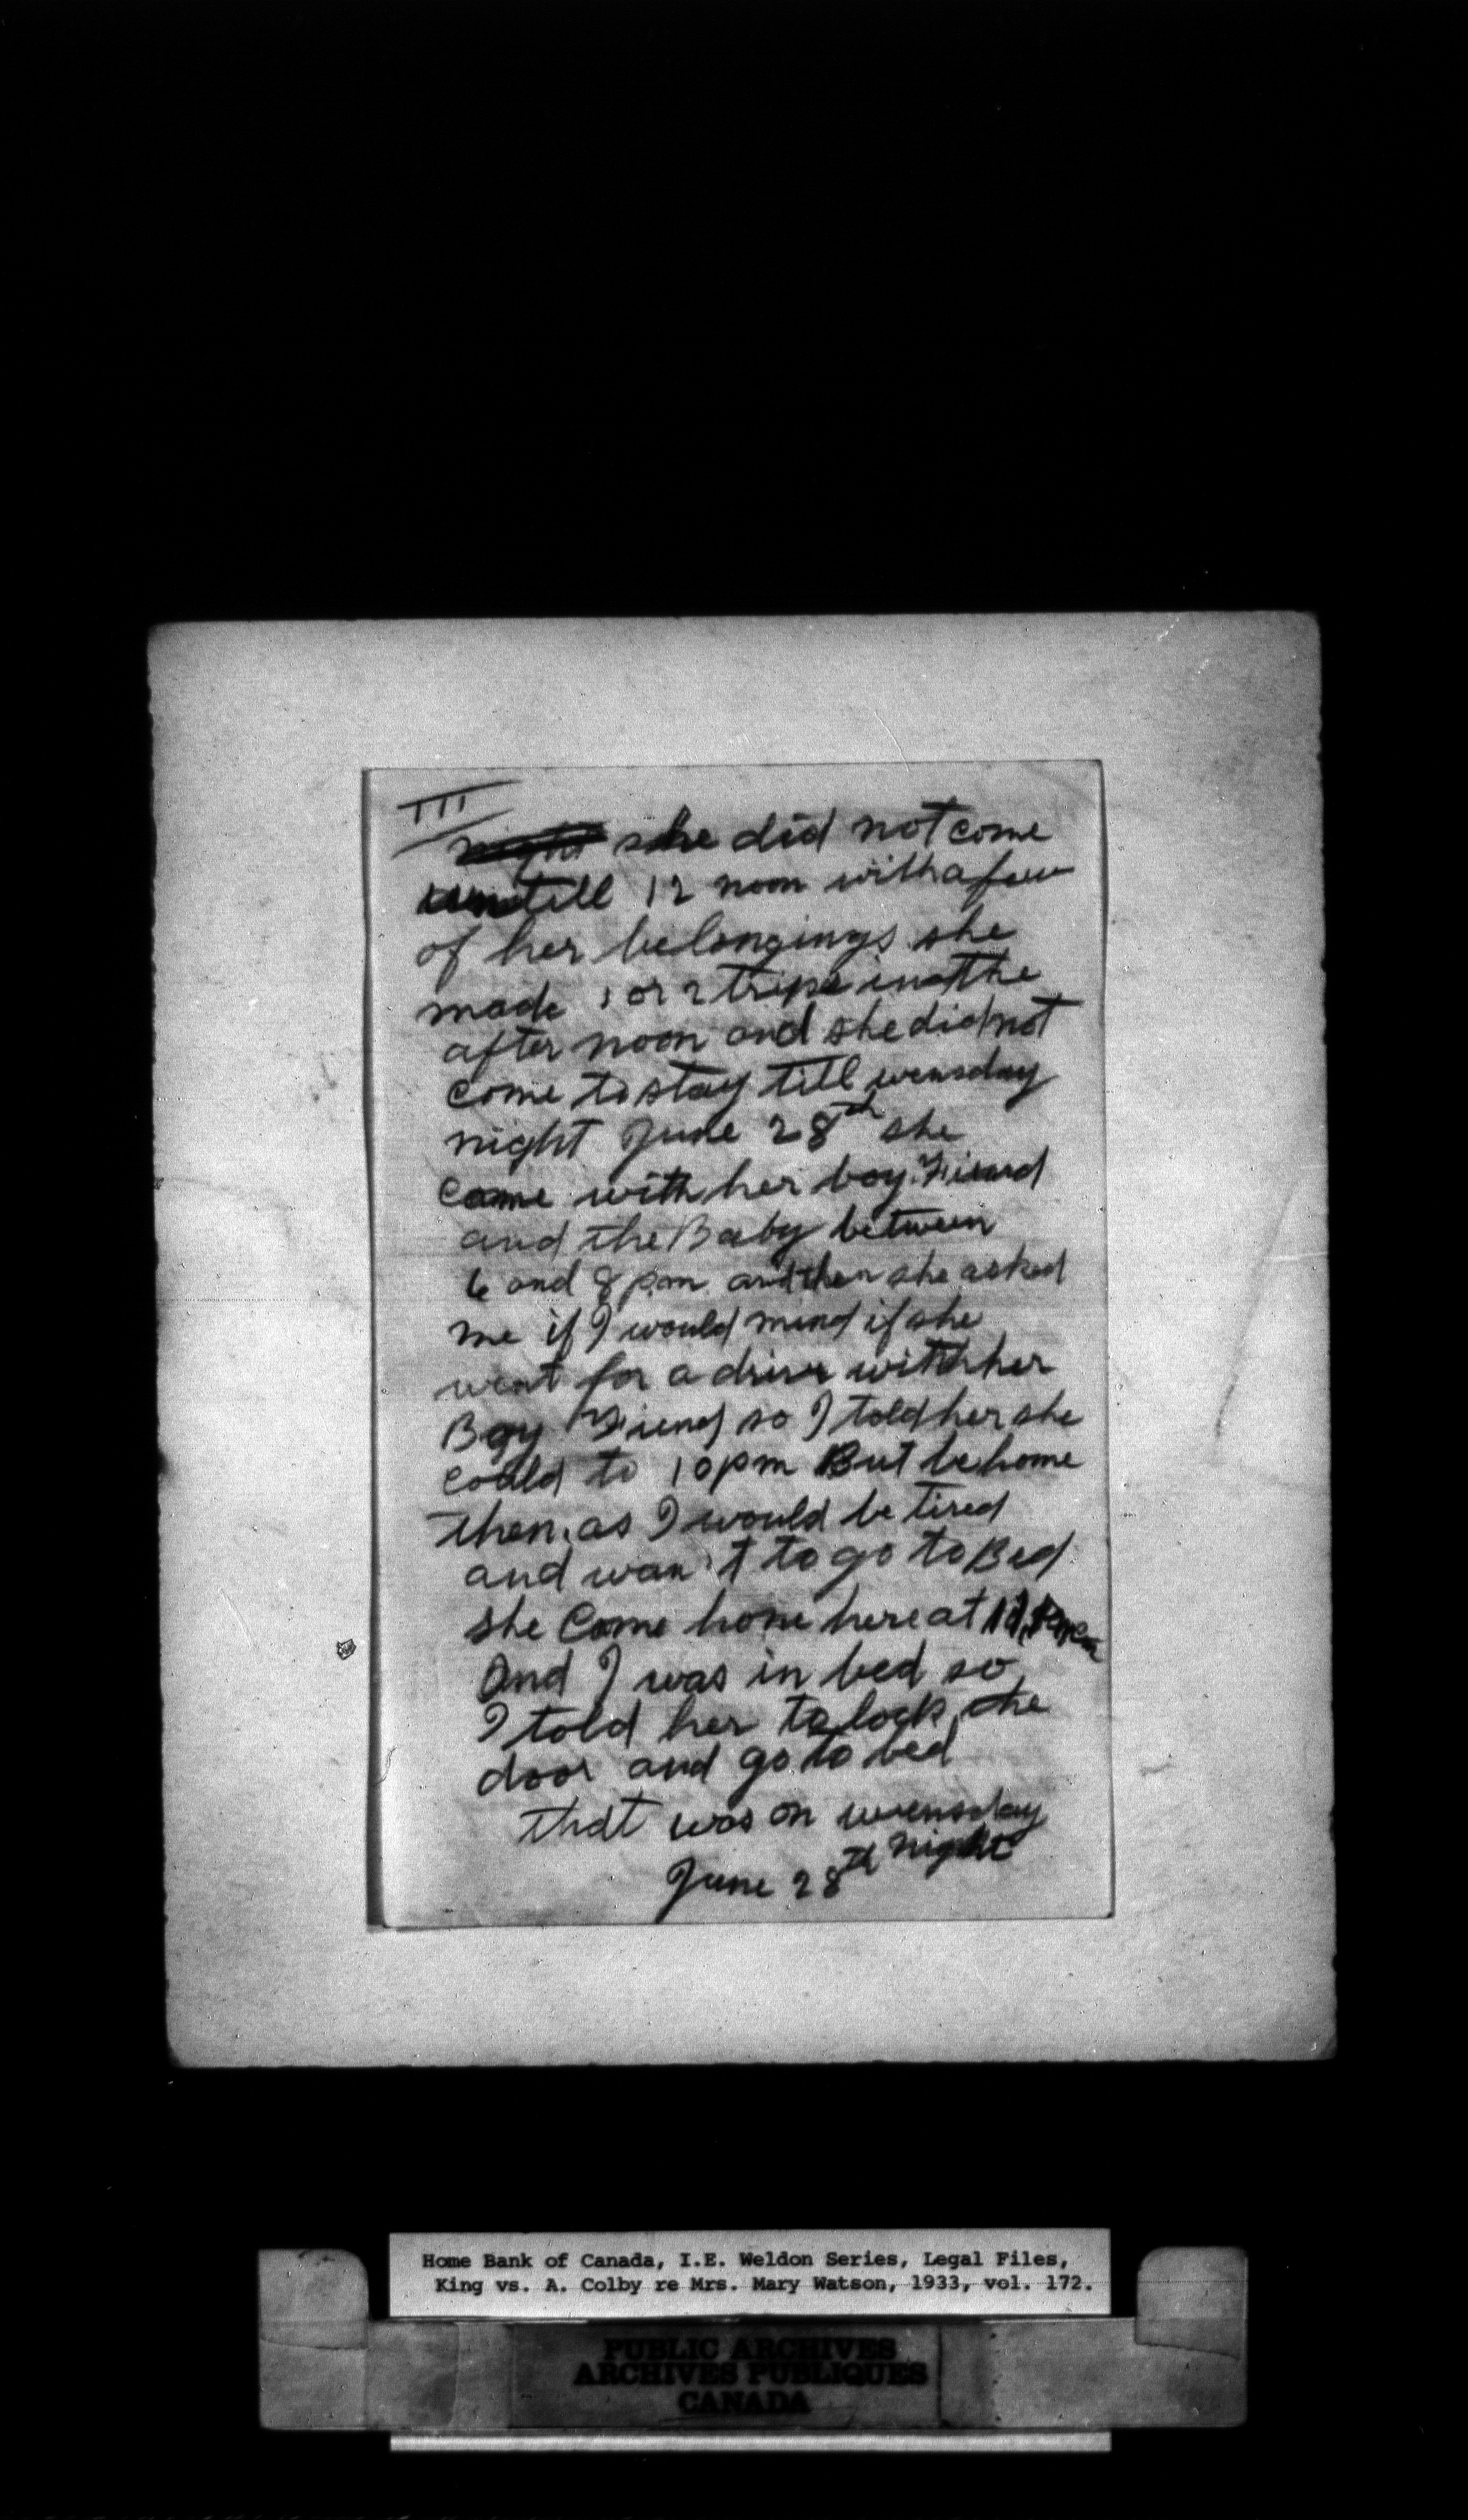 III
night she did not come
untill 12 noon with a few
of her belongings she
made 1 or 2 trips in the
after noon and she did not
come to stay till wensday
night June 28th she
came with her boy Friend
and the Baby between
6 and 8 pm and then she asked
me if I would mind if she
went for a drive with her
Boy Friend so I told her she
could to 10 pm But be home
then as I would be tired
and want to go to Bed
she Come home here at
And I was in bed so
I told her to lock the
door and go to bed
that was on wensday
June 28th night
Home Bank of Canada, I.E. Weldon Series, Legal Files,
King vs. A. Colby re Mrs. Mary Watson, 1933, vol. 172.
PUBLIC ARCHIVES
ARCHIVES PUBLIQUES
CANADA